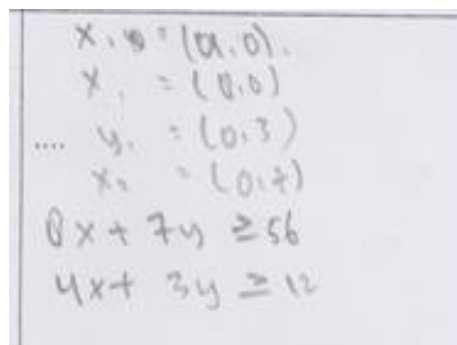 = (0,0).
x₁ = (0,0)
.... y₁ = (0,3)
x₂ = (0,7)
8x + 7y ≥ 56
4x + 3y ≥ 12